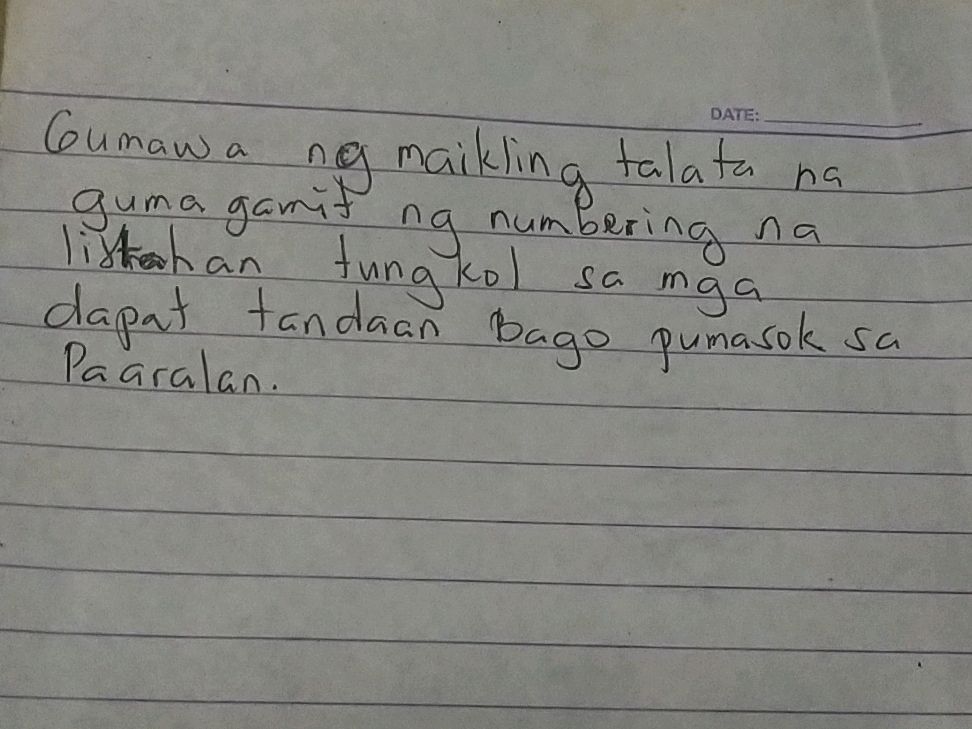 DATE:
Gumawa ng maikling talata na
gumagamit ng numbering na
listahan tungkol sa mga
dapat tandaan bago pumasok sa
Paaralan.